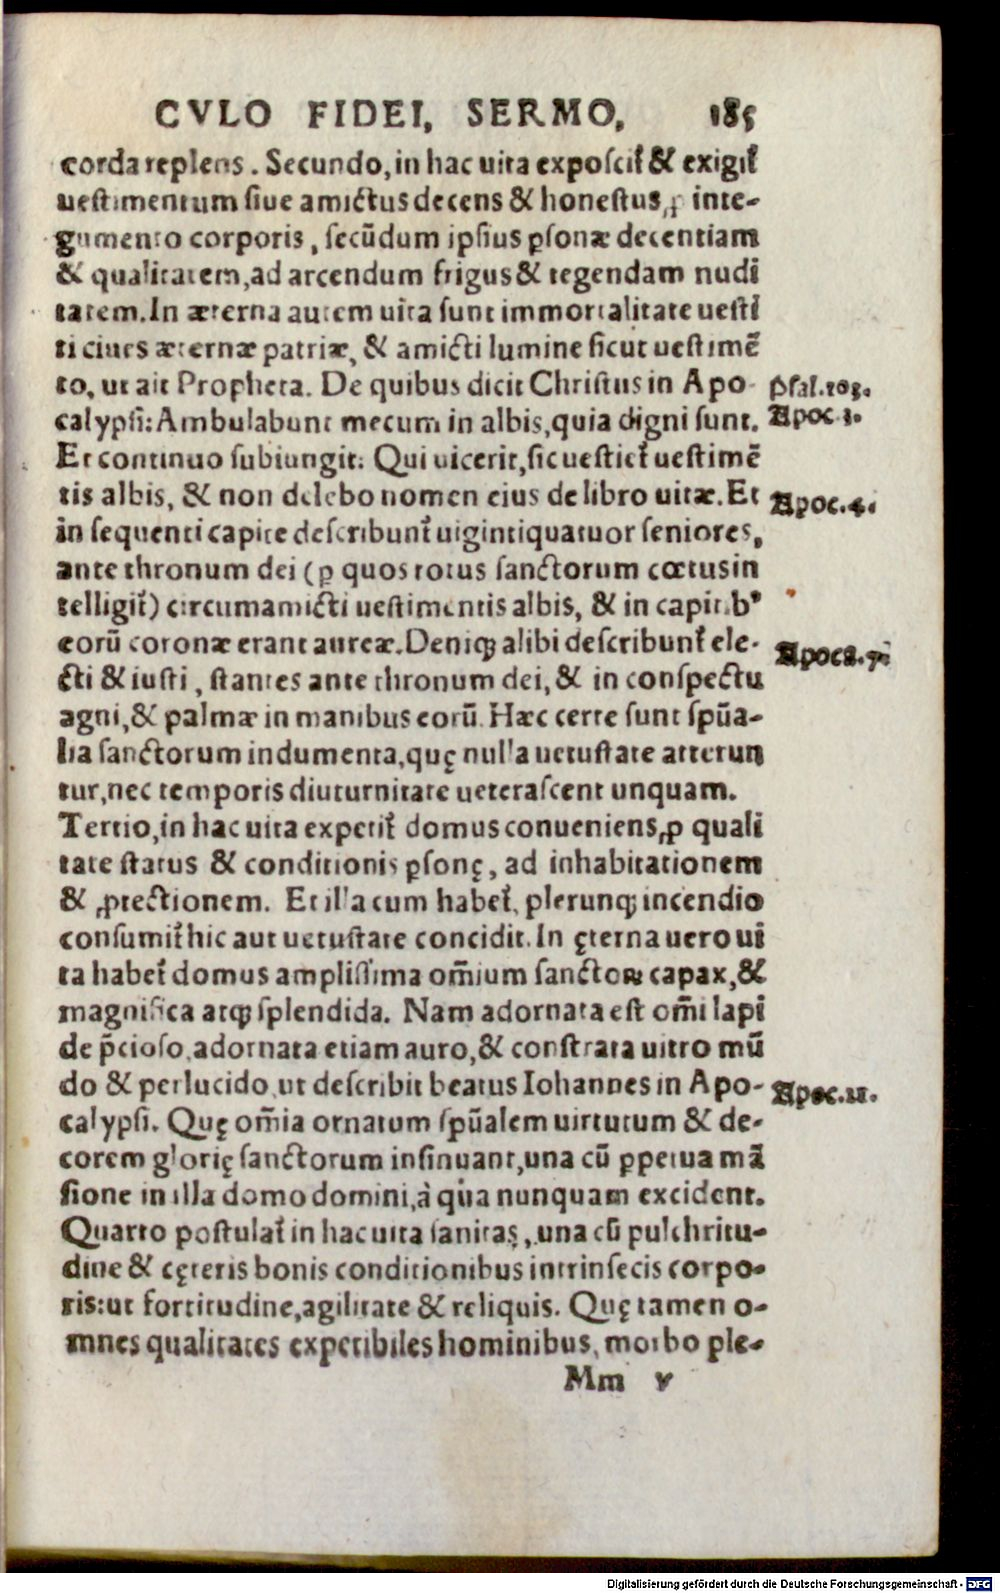 CVLO FIDEI, SERMO, 185
corda replens. Secundo, in hac uita exposcit᷑ & exigit᷑
uestimentum siue amictus decens & honestus, ꝓ inte-
gumento corporis, secūdum ipsius ꝑsonæ decentiam
& qualitatem, ad arcendum frigus & tegendam nudi
tatem. In æterna autem uita sunt immortalitate uesti
ti ciues æternæ patriæ, & amicti lumine sicut uestimē
to, ut ait Propheta. De quibus dicit Christus in Apo-
Psal.103.
calypsi: Ambulabunt mecum in albis, quia digni sunt.
Apoc 3.
Et continuo subiungit: Qui uicerit, sic uestiet᷑ uestimē
tis albis, & non delebo nomen eius de libro uitæ. Et
Apoc.4.
in sequenti capite describunt᷑ uigintiquatuor seniores,
ante thronum dei (ꝑ quos totus sanctorum cœtus in
telligit᷑) circumamicti uestimentis albis, & in capitibꝰ
eorū coronæ erant aureæ. Deniqꝫ alibi describunt᷑ ele-
Apoca.7.
cti & iusti, stantes ante thronum dei, & in conspectu
agni, & palmæ in manibus eorū. Hæc certe sunt spūa-
lia sanctorum indumenta, quę nulla uetustate atterun
tur, nec temporis diuturnitate ueterascent unquam.
Tertio, in hac uita expetit᷑ domus conueniens, ꝓ quali
tate status & conditionis ꝑsonę, ad inhabitationem
& ꝓtectionem. Et illa cum habet᷑, plerunqꝫ incendio
consumit᷑ hic aut uetustate concidit. In ęterna uero ui
ta habet᷑ domus amplissima om̄ium sanctoꝝ capax, &
magnifica atqꝫ splendida. Nam adornata est om̄i lapi
de p̄cioso, adornata etiam auro, & constrata uitro mū
do & perlucido, ut describit beatus Iohannes in Apo-
Apoc.21.
calypsi. Quę om̄ia ornatum spūalem uirtutum & de-
corem glorię sanctorum insinuant, una cū ꝑpetua mā
sione in illa domo domini, à qua nunquam excident.
Quarto postulat᷑ in hac uita sanitas, una cū pulchritu-
dine & cęteris bonis conditionibus intrinsecis corpo-
ris: ut fortitudine, agilitate & reliquis. Quę tamen o-
mnes qualitates expetibiles hominibus, morbo ple-
Mm v
Digitalisierung gefördert durch die Deutsche Forschungsgemeinschaft - DFG